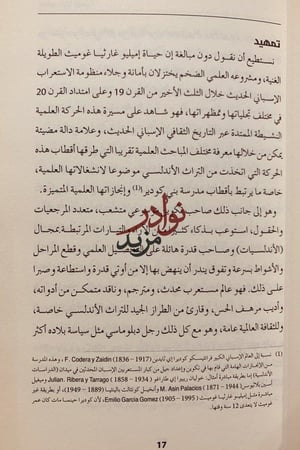 تمهيد
نستطيع أن نقول دون مبالغة إن حياة إميليو غارثيا غوميث الطويلة
الغنية، ومشروعه العلمي الضخم يختزلان بأمانة وجلاء منظومة الاستعراب
الإسباني الحديث خلال الثلث الأخير من القرن 19 وعلى امتداد القرن 20
في مختلف تجلياتها وتمظهراتها، فهو شاهد على مسيرة هذه الحركة العلمية
النشيطة الممتدة عبر التاريخ الثقافي الإسباني الحديث، وعلامة دالة مضيئة
يمكن من خلالها معرفة مختلف المباحث العلمية تقريبا التي طرقها أقطاب هذه
الحركة التي اتخذت من التراث الأندلسي موضوعا لانشغالاتها العلمية،
خاصة ما يرتبط بأقطاب مدرسة بني كوديرا(1) وإنجازاتها العلمية المتميزة.
وهو إلى جانب ذلك صاحب علمي متشعب، متعدد المرجعيات
والحقول، استوعب بذكاء، التيارات المرتبطة بمجال
(الأندلسيات) وصاحب قدرة هائلة على العلمي وقطع المراحل
والأشواط بسرعة وتفوق يندر أن ينهض بها إلا من أوتي قدرة واستطاعة وصبرا
في ذلك. فهو عالم مستعرب محدث، ومترجم، وناقد متمكن من أدواته،
وأديب مرهف الحس، وقارئ من الطراز الجيد للتراث الأندلسي خاصة،
وللثقافة العالمية عامة، وهو مع كل ذلك رجل دبلوماسي مثل سياسة بلاده أكثر
نوادر
مزيد
(1) نسبة إلى العالم الإسباني الكبير فرانثيسكو كوديرا إي ثايدين (1836 - 1917) F. Codera y Zaidin، وهذه المدرسة
من الإنجازات الهامة التي قام بها في تكوين وإعداد جيل من كبار المستعربين الإسبان المحدثين في ميدان (الدراسات
الأندلسية) إما بطريقة مباشرة أمثال: خوليان ريبيرا إي طراغو (1858 - 1934) Julian. Ribera y Tarrago وميغيل
أسين بلاثيوس (1871 - 1944) M. Asin Palacios وأنخيل كونثالث بالنثيا (1889 - 1949)، أو بطريقة غير
مباشرة مثل إميليو غارثيا غوميث (1905 - 1995) Emilio Garcia Gomez، لأن كوديرا حينما مات كان عمر
غوميث لا يتعدى 12 سنة وقتها.
17